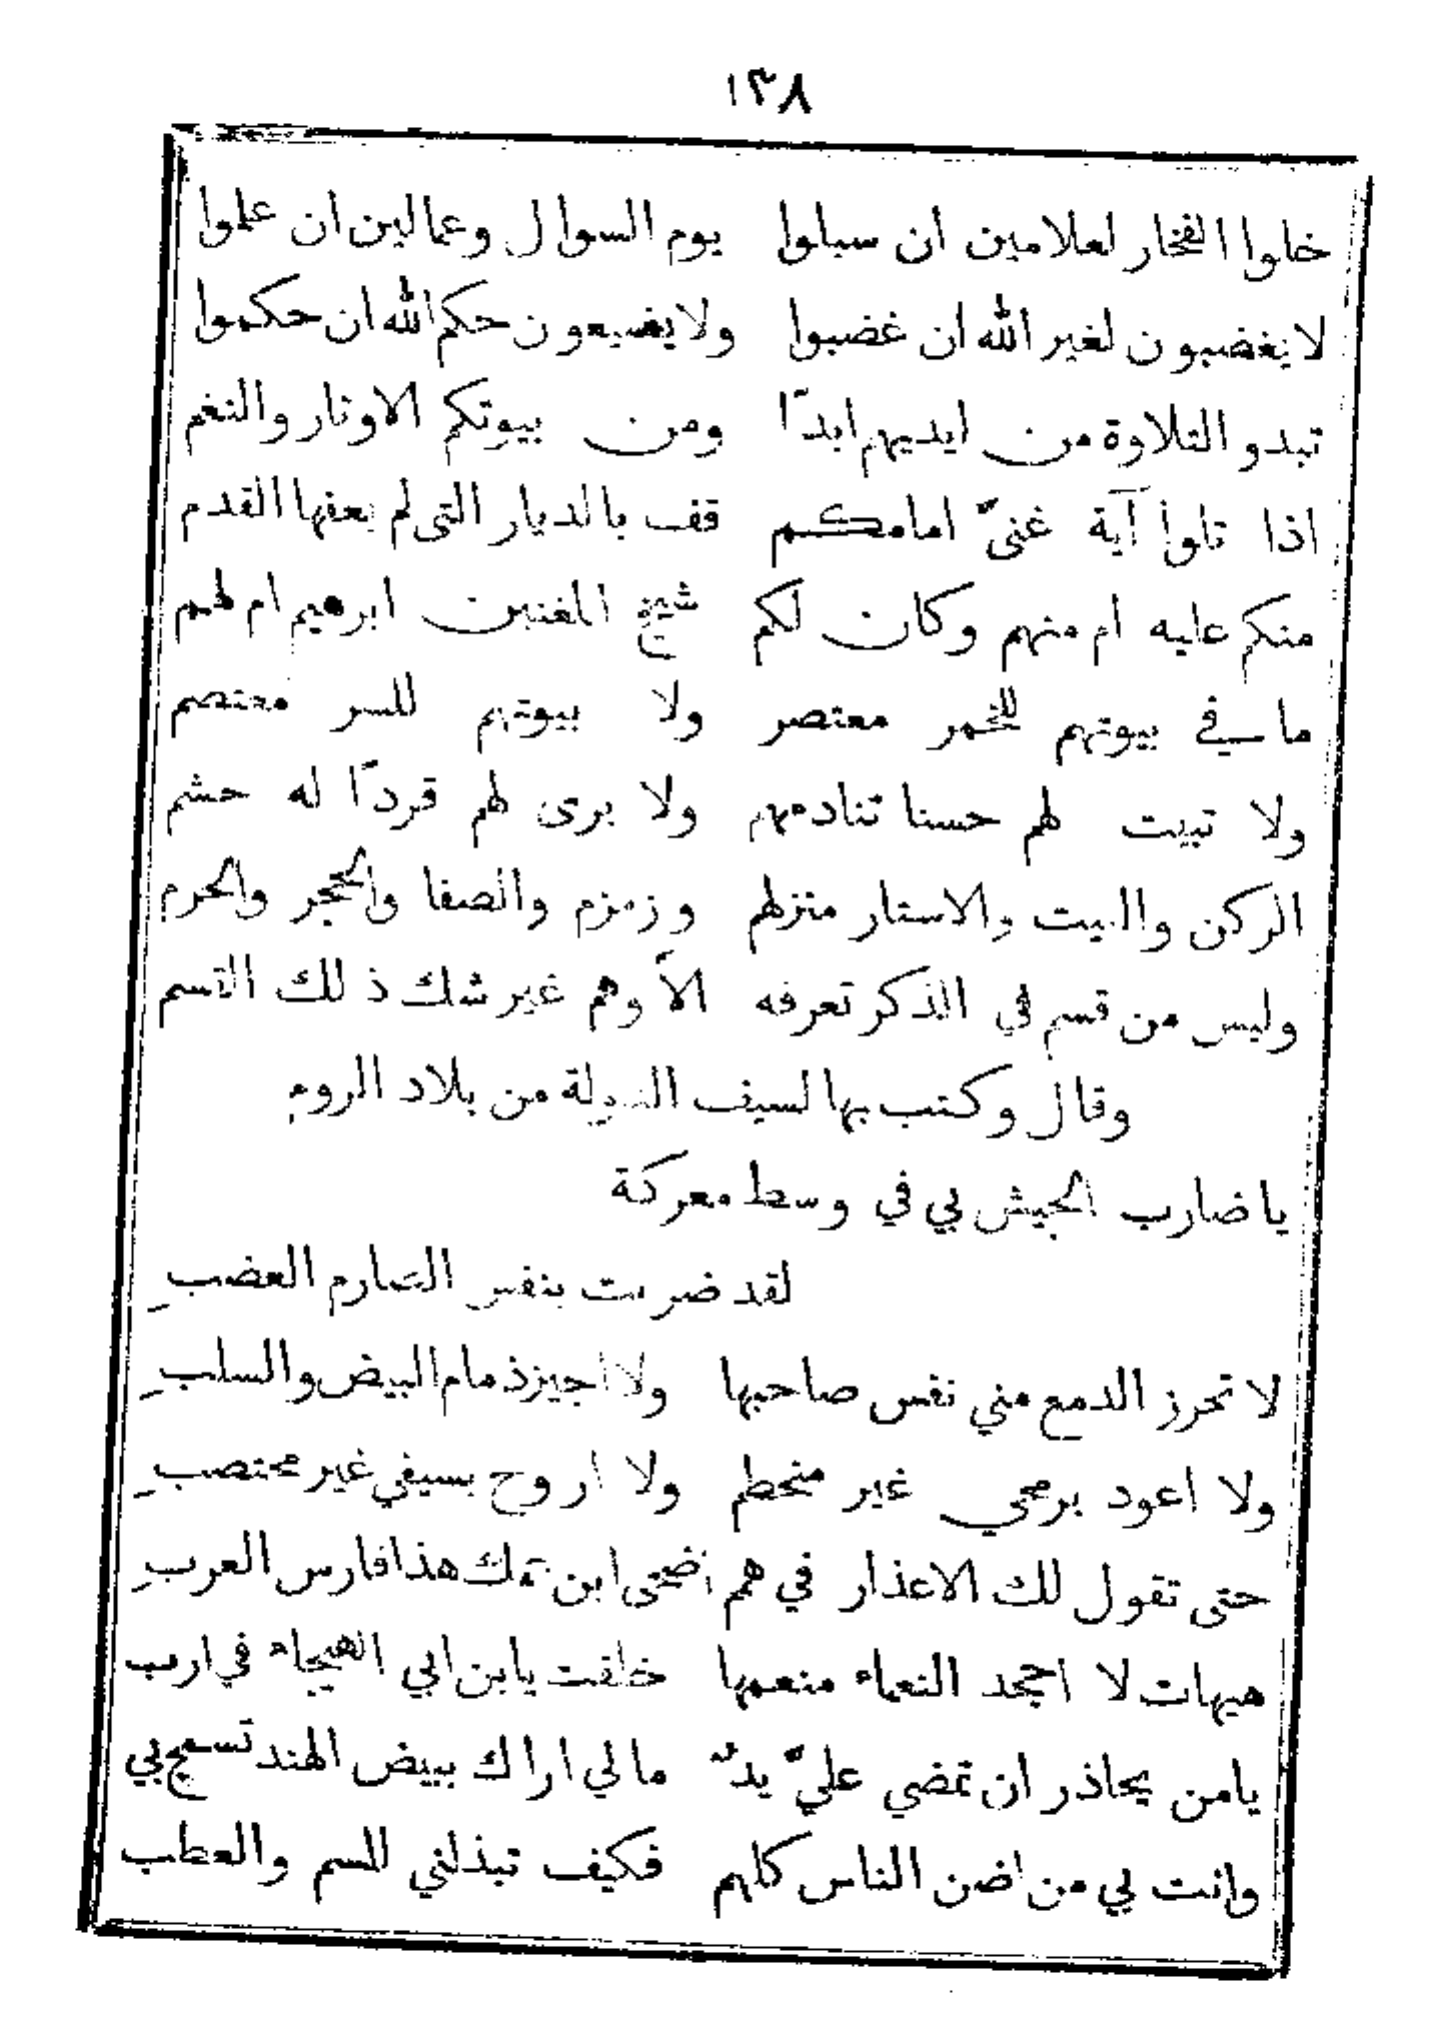 ١٣٨
خلوا الفخار لعلامين ان سيلوا يوم السوال وعمالين ان علموا
لا يغضبون لغير الله ان غضبوا ولا يضيعون حكم الله ان حكموا
تبدو التلاوة من ايديهم ابدًا ومن بيوتكم الاوتار والنغم
اذا تلوا آية غنىّ امامكم قف بالديار التى لم يعفها القدم
منكم عليه ام منهم وكان لكم شيخ المغنين ابرهيم ام لهم
ما في بيوتهم للخمر معتصر ولا بيوتهم للسر معتصم
ولا تبيت لهم خنسا تنادمهم ولا يرى لهم قردًا له حشم
الركن والبيت والاستار منزلهم وزمزم والصفا والحجر والحرم
وليس من قسم في الذكر تعرفه الاّ وهم غير شك ذلك القسم
وقال وكتب بها لسيف الدولة من بلاد الروم
يا ضارب الجيش بي في وسط معركة
لقد ضربت بنفس الصارم العضبِ
لا تحرز الدمع مني نفس صاحبها ولا اجيز ذمام البيض والسلبِ
ولا اعود برمحي غير منحطم ولا اروح بسيفي غير مختصبِ
حتى تقول لك الاعذار في هم اضحى ابن عمك هذا فارس العربِ
هيهات لا اجحد النعماء منعمها خلفت يا بن ابي الهيجاء في ارب
يا من يحاذر ان تمضي عليّ يدٌ ما لي اراك ببيض الهند تسمح بي
وانت بي من اضن الناس كلهم فكيف تبذلني للسم والعطب